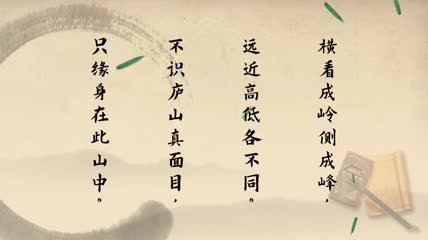 横看成岭侧成峰，
远近高低各不同。
不识庐山真面目，
只缘身在此山中。